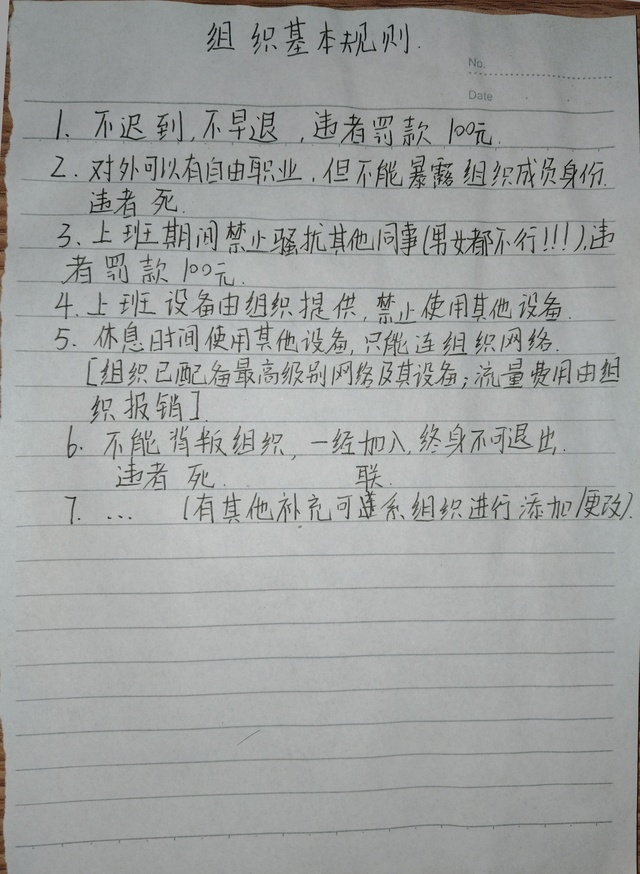 组织基本规则.
No.
Date
1. 不迟到,不早退,违者罚款 100元.
2. 对外可以有自由职业,但不能暴露组织成员身份.
违者 死.
3. 上班期间禁止骚扰其他同事(男女都不行!!!),违
者罚款 100元.
4. 上班设备由组织提供,禁止使用其他设备.
5. 休息时间使用其他设备,只能连组织网络.
[组织已配备最高级别网络及其设备;流量费用由组
织报销].
6. 不能背叛组织,一经加入,终身不可退出.
违者 死. 联.
7. ... (有其他补充可系组织进行添加/更改).